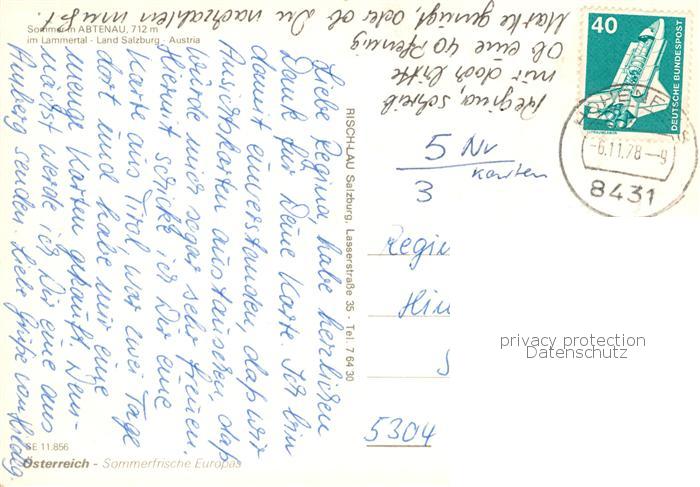 Sommer in ABTENAU, 712 m
im Lammertal - Land Salzburg - Austria
Liebe Regina habe herzlichen
Dank für Deine Karte Ich bin
damit einverstanden, daß wir
Ansichtskarten austauschen, daß
würde mich sogar sehr freuen.
Hiermit schicke ich Dir eine
Karte aus Tirol war zwei Tage
dort und habe mir eine
menge Karten gekauft Dem-
nächst werde ich Dir eine aus
Amberg senden. Liebe Grüße von
Regina, schreib
mir doch bitte
Ob eine 40 Pfennig
Marke genügt, oder ob Du nachzahlen mußt.
RISCH-LAU Salzburg, Lasserstraße 35 - Tel. 7 64 30
40
DEUTSCHE BUNDESPOST
-6.11.78-9
8431
5 Nr
Karten
3
Regin
Hin
5304
privacy protection
Datenschutz
SE 11.856
Österreich - Sommerfrische Europas